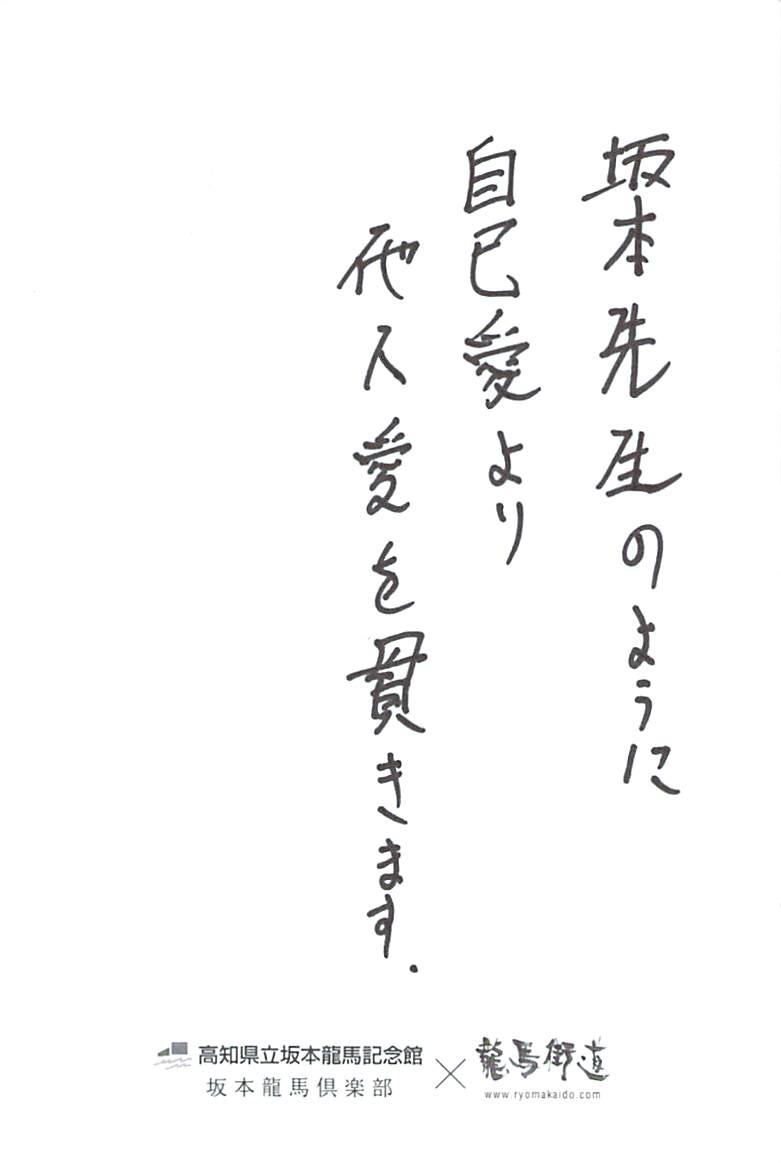 坂本先生のように
自己愛より
他人愛を貫きます.
高知県立坂本龍馬記念館
坂本龍馬倶楽部
×
龍馬街道
www.ryomakaido.com